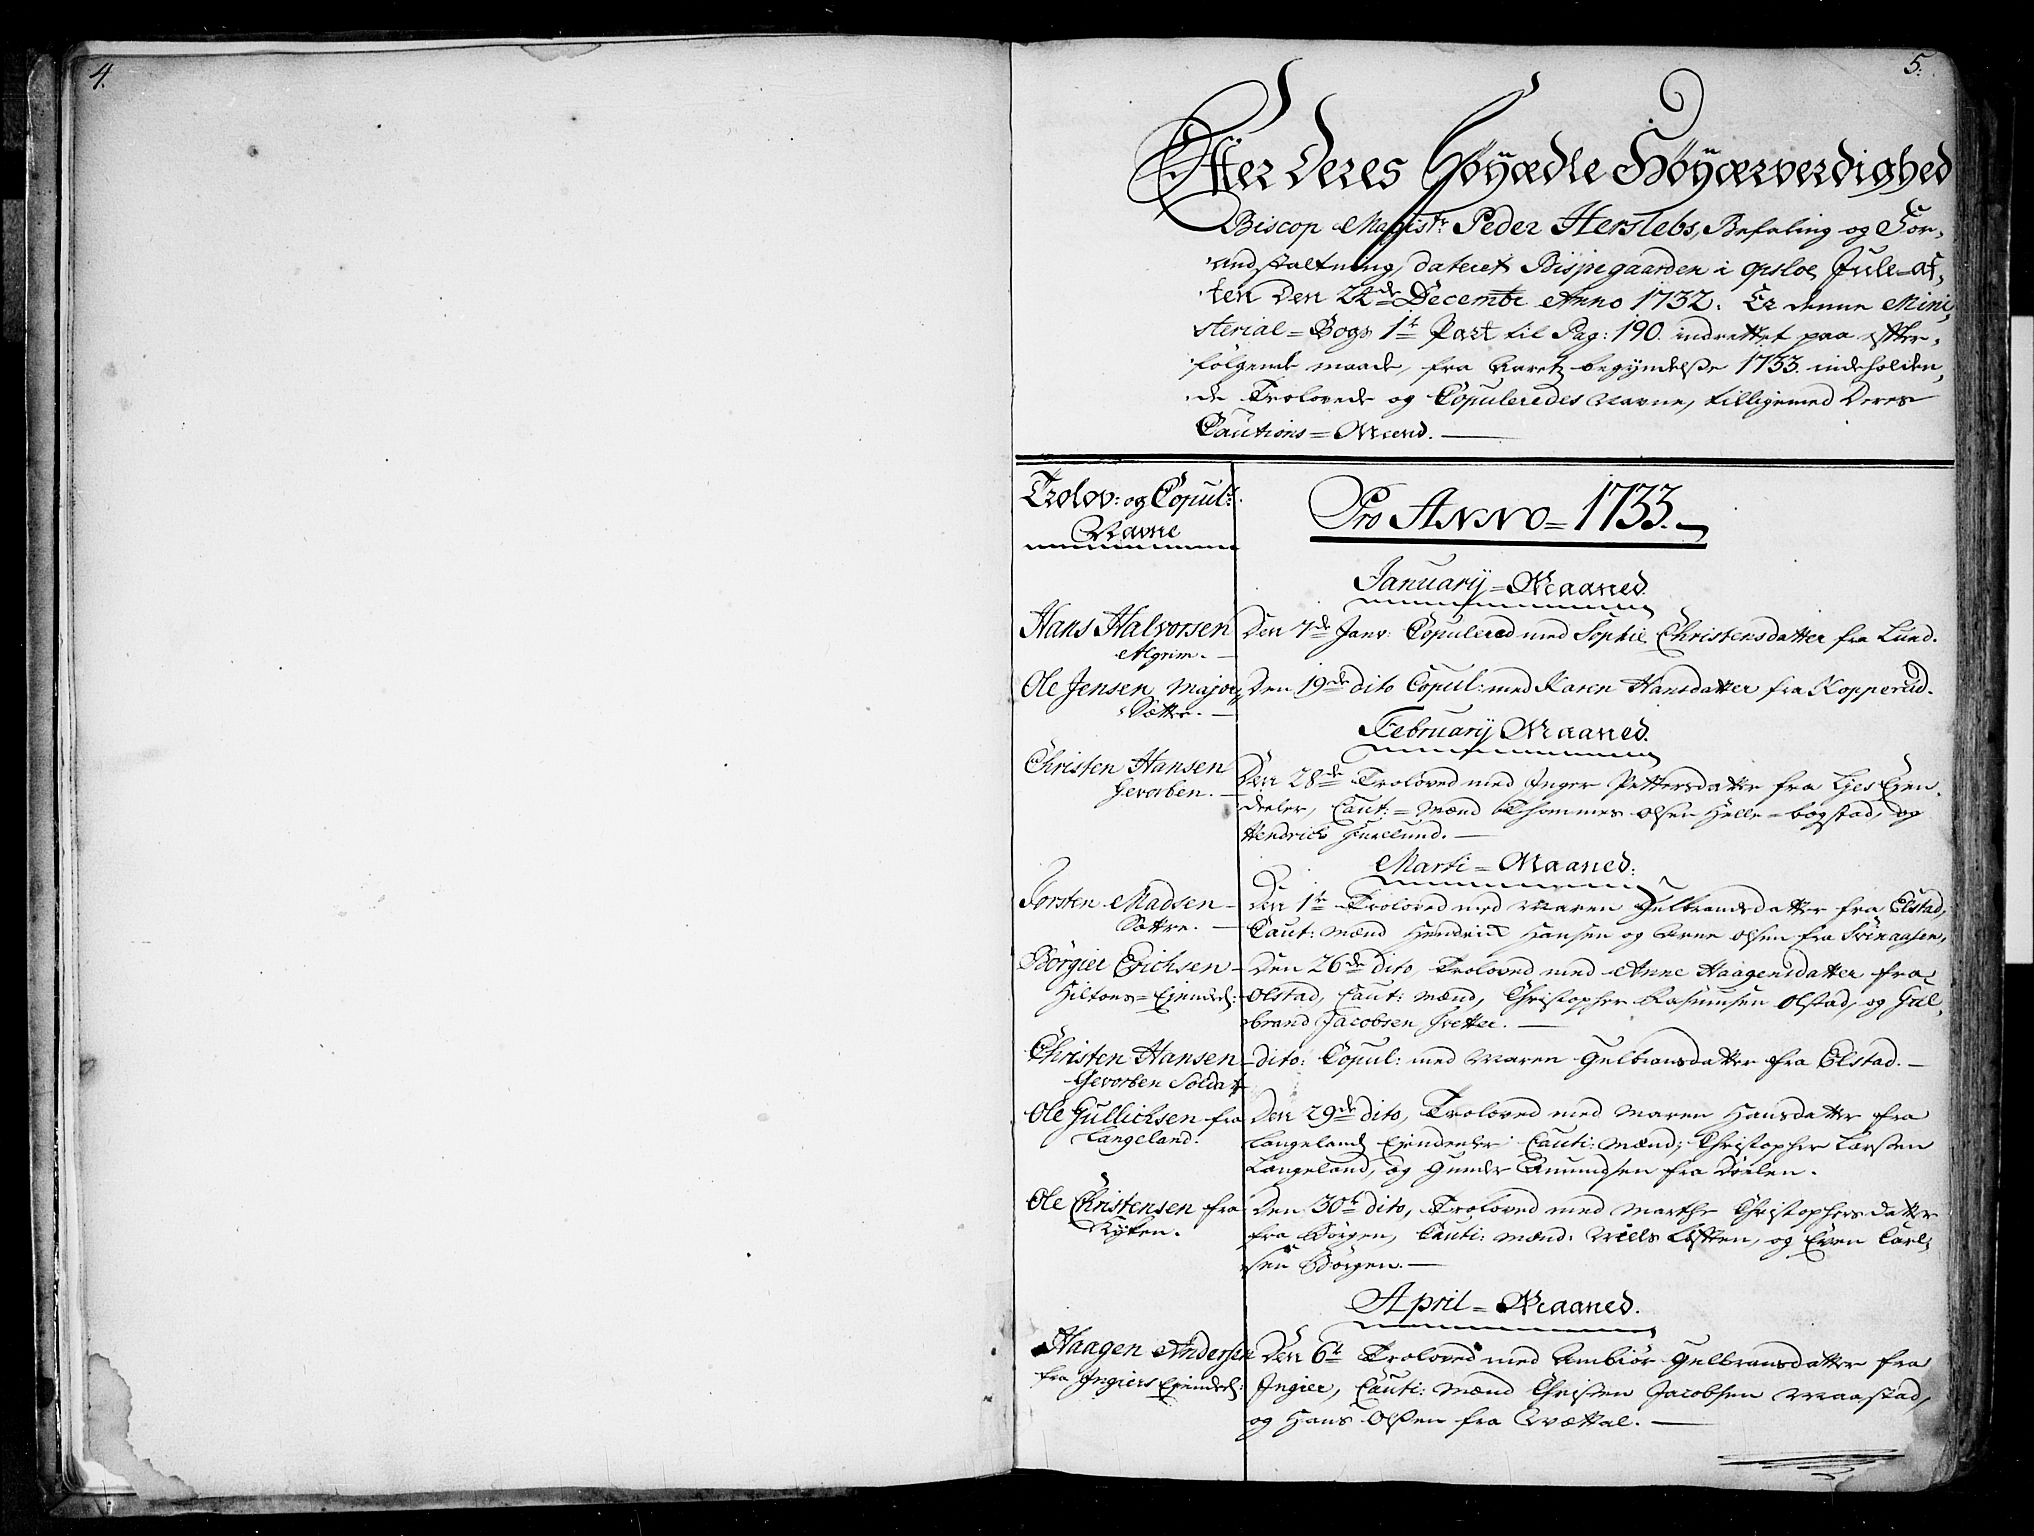 4.
5.
Efter Deres Höÿædle Höÿærverdighed
Biscop Magistr: Peder Herslebs, Befaling og For-
andstaltning, dateret Bispegaarden i Opsloe Jule-af-
ten Den 24de Decembr Anno 1732. Er denne Mini-
sterial=Bogs 1te Part til Pag: 190. indrettet paa efter-
fölgende maade, fra Aaretz begÿndelße 1733. indeholden-
de Trolovede og Copuleredes Navne, tilligemed Deres
Cautions=Mænd.
Trolov: og Copul:
Navne
Pro ANNO=1733.
Januarÿ=Maaned.
Hans Halvorsen
Algrim.
Den 7de Janv: Copulered med Sophie Christensdatter fra Lund.
Ole Jensen Major
Sættre.
Den 19de dito Copul: med Karen Hansdatter fra Kopperud.
Februarÿ Maaned.
Christen Hansen
Gevorben.
Den 28de Troloved med Inger Pettersdatter fra Ejen-
deeler, Caut:=Mænd Thommes Olsen Helle=bogstad, og
Hendrich Furelund.
Marti=Maaned.
Torsten Madsen
Sættre.
Den 1te Trolovet med Maren Gulbrandsdatter fra Elstad,
Caut: Mænd Hendrich Hansen og Arne Olsen fra Svinaasen,
Börgier Erichsen
Hiltons=Ejendeel:
Den 26de dito, Troloved med Anne Haagensdatter fra
Olstad, Caut: Mænd, Christopher Rasmusen Olstad, og Gul-
brand Jacobsen Tvetter.
Christen Hansen
Gevorben Soldat
dito: Copul: med Maren Gulbransdatter fra Elstad.
Ole Gullichsen fra
Langeland.
Den 29de dito, Troloved med Maren Hansdatter fra
Langelands Ejendeeler Cauti: Mænd; Christopher Larsen
Langeland, og Gunder Amundsen fra Döelen.
Ole Christensen fra
Ryken.
Den 30te dito, Trolovet med Marthe Christophersdatter
fra Börgen, Cauti: Mænd: Niels Löften, og Even Carl-
sen Börgen.
April=Maaned.
Haagen Andersen
fra Ingiers Ejendeel:
Den 6te Trolovet med Ambiör Gulbransdatter fra
Ingier, Cauti: Mænd Christen Jacobsen Maastad,
og Hans Olsen fra Qvættal.